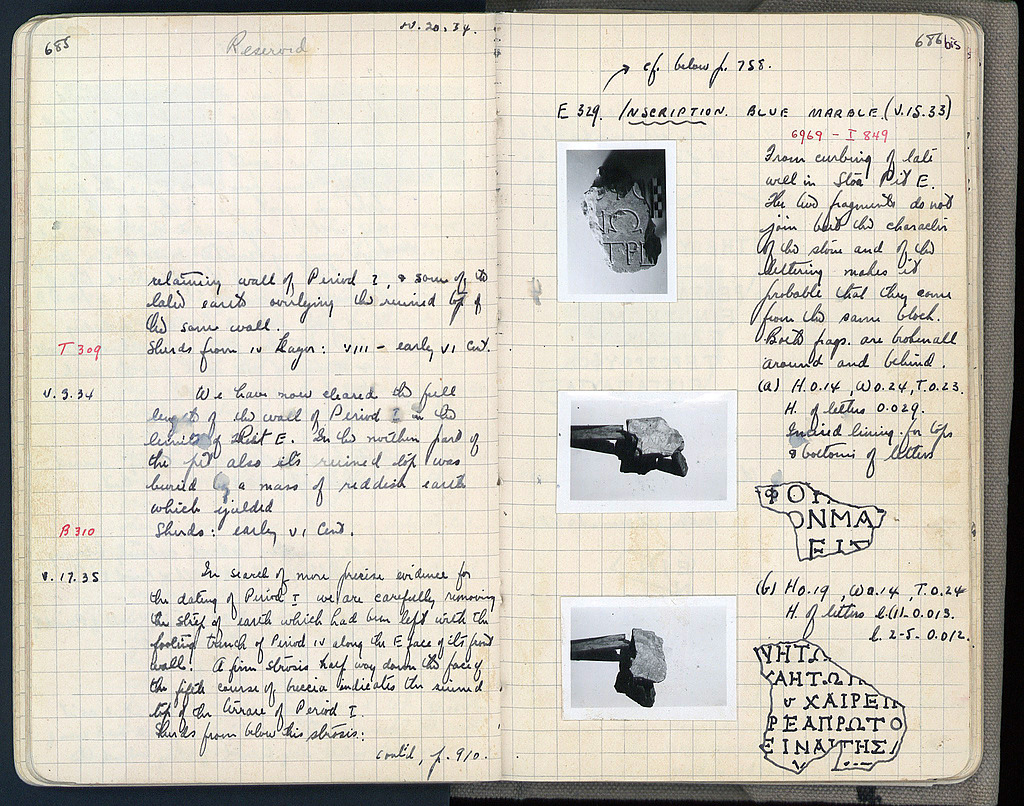 685
Reserved
IV. 20. 34.
retaining wall of Period I, & some of the
later earth overlying the ruined top of
the same wall.
T 309
Sherds from IV layer: VIII - early VI Cent.
V. 9. 34
We have now cleared the full
length of the wall of Period I in the
limits of Pit E. In the northern part of
the pit also its ruined top was
buried a mass of reddish earth
which yielded
B 310
Sherds: early VI Cent.
V. 17. 35
In search of more precise evidence for
the dating of Period I we are carefully removing
the strip of earth which had been left with the
footing trench of Period IV along the E face of its front
wall. A firm strosis half way down the face of
the fifth course of breccia indicates the ruined
top of the terrace of Period I.
Sherds from below this strosis:
cont'd, p. 910.
686 bis
cf. below p. 758.
E 329. INSCRIPTION. BLUE MARBLE. (V.15.33)
6969 - I 849
From curbing of late
well in Stoa Pit E.
The two fragments do not
join but the character
of the stone and of the
lettering makes it
probable that they come
from the same block.
Both frags. are broken all
around and behind.
(a) H. 0.14, W 0.24, T. 0.23.
H. of letters 0.029.
Incised lining for tops
& bottoms of letters
ΙΩ
ΤΡΙ
ΦΟΡ
ΟΝΜΑ
ΕΙΣ
(b) H 0.19, W 0.14, T. 0.24
H. of letters l.(1)-0.013.
l. 2-5-0.012.
ΝΗΤΩ
ΛΗΤΩΙ
ΧΑΙΡΕΙΝ
ΡΕΑΠΡΩΤΟ
ΕΙΝΑΙΤΗΣ